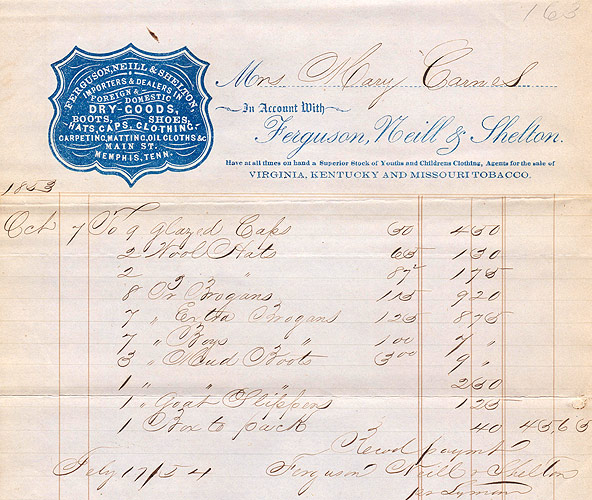 163
FERGUSON, NEILL & SHELTON,
IMPORTERS & DEALERS IN
FOREIGN & DOMESTIC
DRY-GOODS,
BOOTS, SHOES,
HATS, CAPS, CLOTHING,
CARPETING, MATTING, OIL CLOTHS &c
MAIN ST.
MEMPHIS, TENN.
Mrs Mary Carnes
In Account With
Ferguson, Neill & Shelton.
Have at all times on hand a Superior Stock of Youths and Childrens Clothing, Agents for the sale of
VIRGINIA, KENTUCKY AND MISSOURI TOBACCO.
1853
Oct 7 To 9 Glazed Caps 50 450
2 Wool Hats 65 130
2 " " 87½ 175
8 Pr Brogans 115 920
7 " Extra Brogans 125 875
7 " Boys " 100 7 "
3 " Mud Boots 300 9 "
1 " " " 250
1 " Goat Slippers 125
1 Box to pack 40 45,65
Recd paymt
Feby 17/54 Ferguson Neill & Shelton
per Lyman